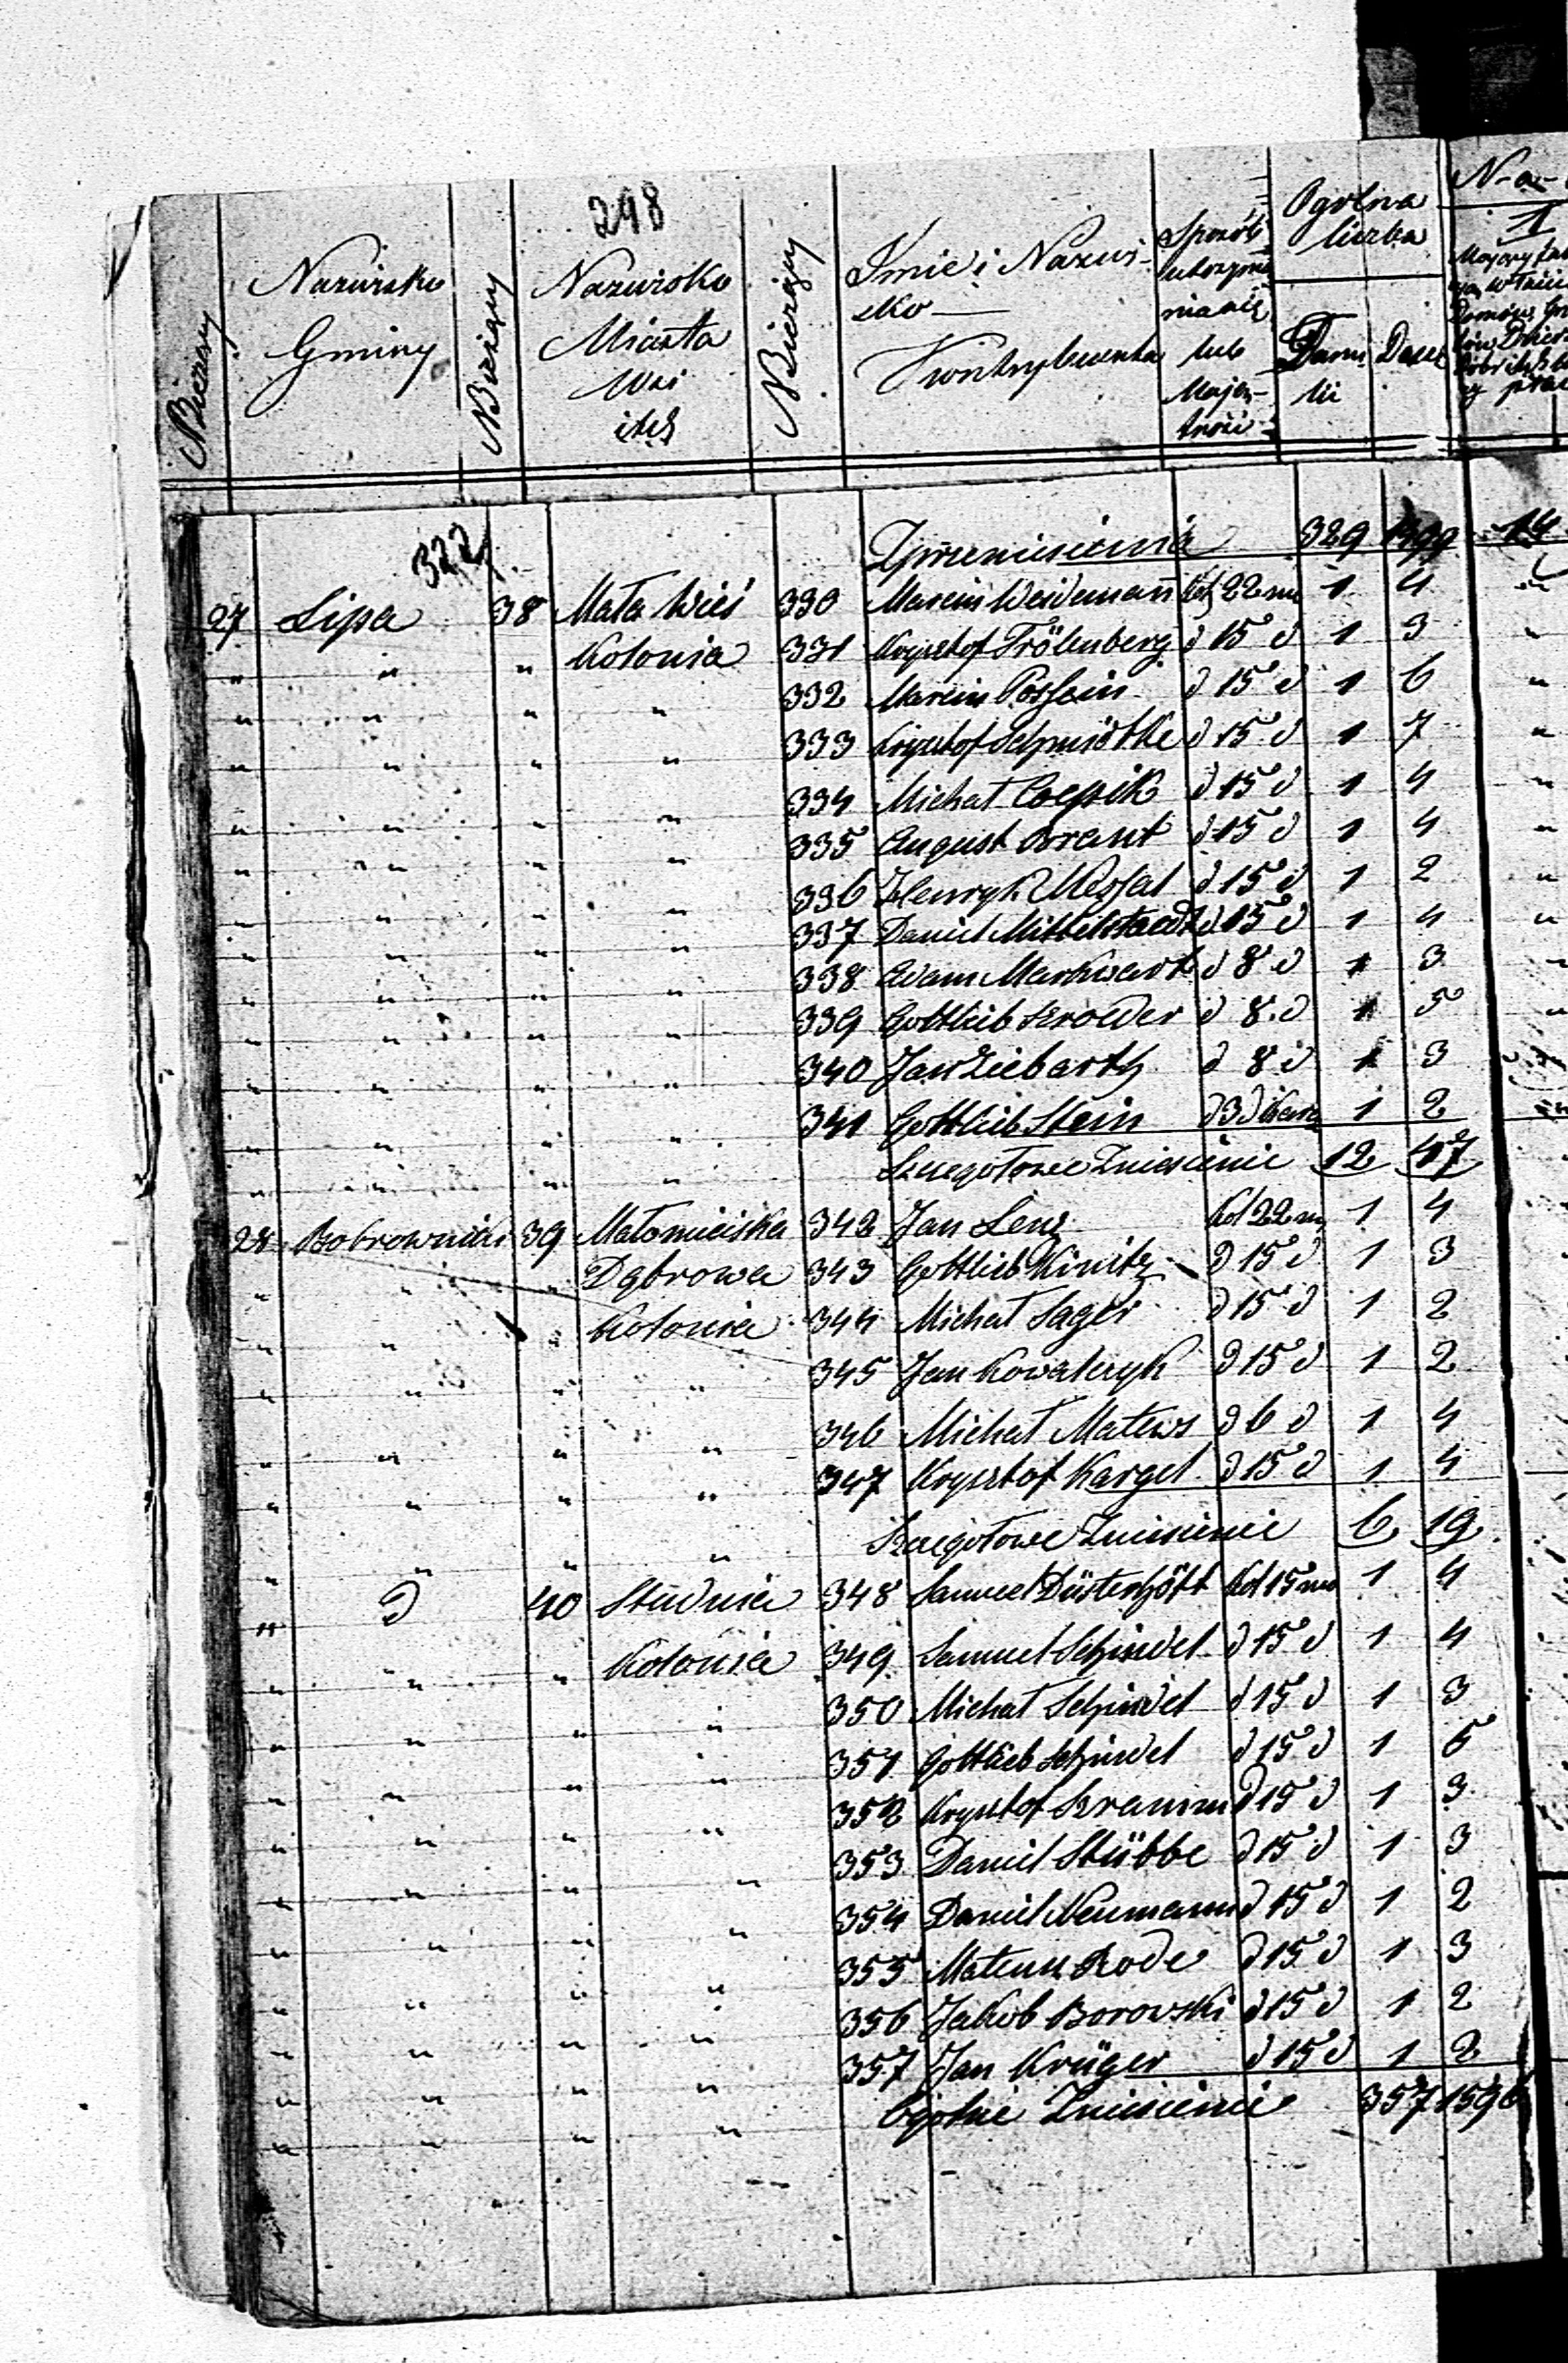 248
N Bieżący Nazwisko Gminy N Bieżący Nazwisko Miasta Wsi itd N Bieżący Imie i Nazwisko Kontrybuenta Sposób utrzymania się lub Majętności Ogólna liczba Familii Dusz
N-o- 1
322
Zprzeniesienia 329 1499 14
27 Lipa 38 Mała Wieś 330 Marcin Weidemann Kol 22 m 1 4
" " " Kolonia 331 Krysztof Frölenberg d 15 d 1 3
" " " " 332 Marcin d 15 d 1 6
" " " " 333 Krysztof Schmidtke d 15 d 1 7
" " " " 334 Michał d 15 d 1 4
" " " " 335 August Brant d 15 d 1 4
" " " " 336 Henryk d 15 d 1 2
" " " " 337 Daniel Mittelstaedt d 15 d 1 4
" " " " 338 Adam Markwart d 8 d 1 3
" " " " 339 Gottlieb Kroeder d 8 d 1 5
" " " " 340 Jan Ziebarth d 8 d 1 3
" " " " 341 Gottlieb Stein d 3 d 1 2
" " " " Szczegołowe Zniesienie 12 47
28 Bobrowniki 39 Małomieiska 342 Jan Lenz Kol 22 m 1 4
" " " Dąbrowa 343 Gottlieb Kinitz d 15 d 1 3
" " " Kolonia 344 Michał Sager d 15 d 1 2
" " " " 345 Jan Kowalczyk d 15 d 1 2
" " " " 346 Michał Matews d 6 d 1 4
" " " " 347 Krysztof Kargel d 15 d 1 4
" " " " Szczegołowe Zniesienie 6 19
" d 40 Studnia 348 Samuel Düsterhöft Kol 15 m 1 4
" " " Kolonia 349 Samuel Schindel d 15 d 1 4
" " " " 350 Michał Schindel d 15 d 1 3
" " " " 351 Gottlieb Schindel d 15 d 1 5
" " " " 352 Krysztof Kramm d 15 d 1 3
" " " " 353 Daniel Stübbe d 15 d 1 3
" " " " 354 Daniel Neumann d 15 d 1 2
" " " " 355 Rode d 15 d 1 3
" " " " 356 Jakob Borowski d 15 d 1 2
" " " " 357 Jan Krüger d 15 d 1 2
" " " " Ogólne Zniesienie 357 1596